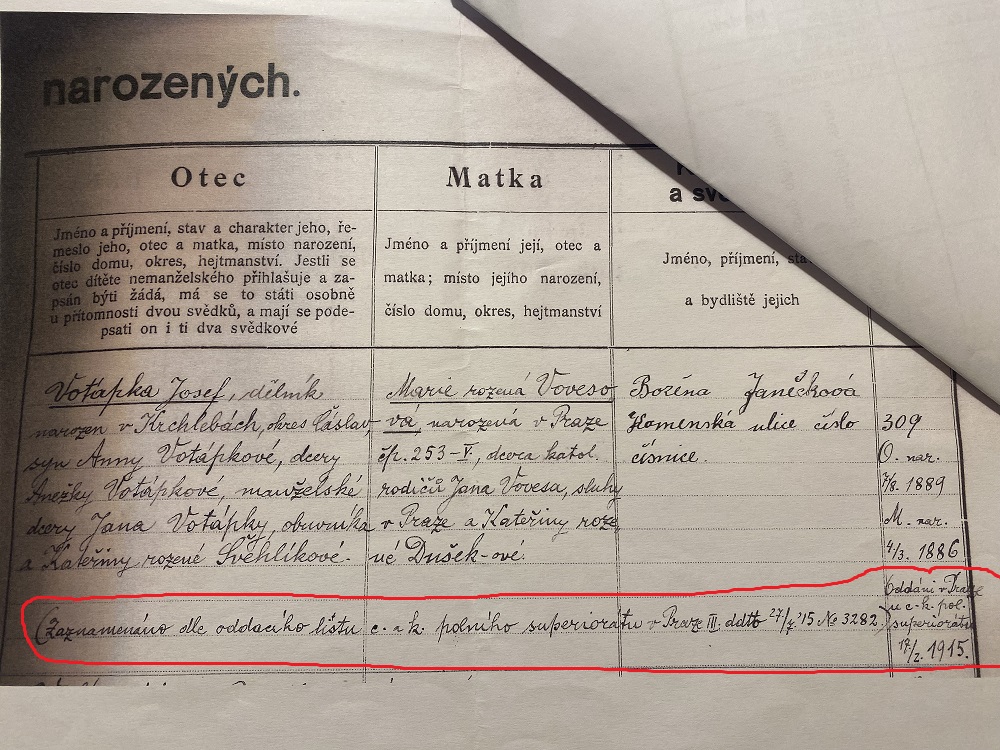 narozených.
Otec
Jméno a příjmení, stav a charakter jeho, ře-
meslo jeho, otec a matka, místo narození,
číslo domu, okres, hejtmanství. Jestli se
otec dítěte nemanželského přihlašuje a za-
psán býti žádá, má se to státi osobně
u přítomnosti dvou svědků, a mají se pode-
psati on i ti dva svědkové
Matka
Jméno a příjmení její, otec a
matka; místo jejího narození,
číslo domu, okres, hejtmanství
a
Jméno, příjmení,
a bydliště jejich
Votápka Josef, dělník
narozen v Krchlebách, okres Čáslav,
syn Anny Votápkové, dcery
Anežky Votápkové, manželské
dcery Jana Votápky, obuvníka
a Kateřiny rozené Švehlíkové.
Marie rozená Voveso
vá, narozená v Praze
čp. 253-V., dcera katol.
rodičů Jana Vovesa, sluhy
v Praze a Kateřiny roze
né Dušek-ové.
Božena Janečková
Komenská ulice číslo
číšnice.
309
O. nar.
7/8. 1889
M. nar.
4/3. 1886
(Zaznamenáno dle oddacího listu c. a k. polního superiorátu v Praze III. ddto 27/7. '15 № 3282.)
Oddáni v Praze
u c. k. pol.
superiorátu
17/2. 1915.